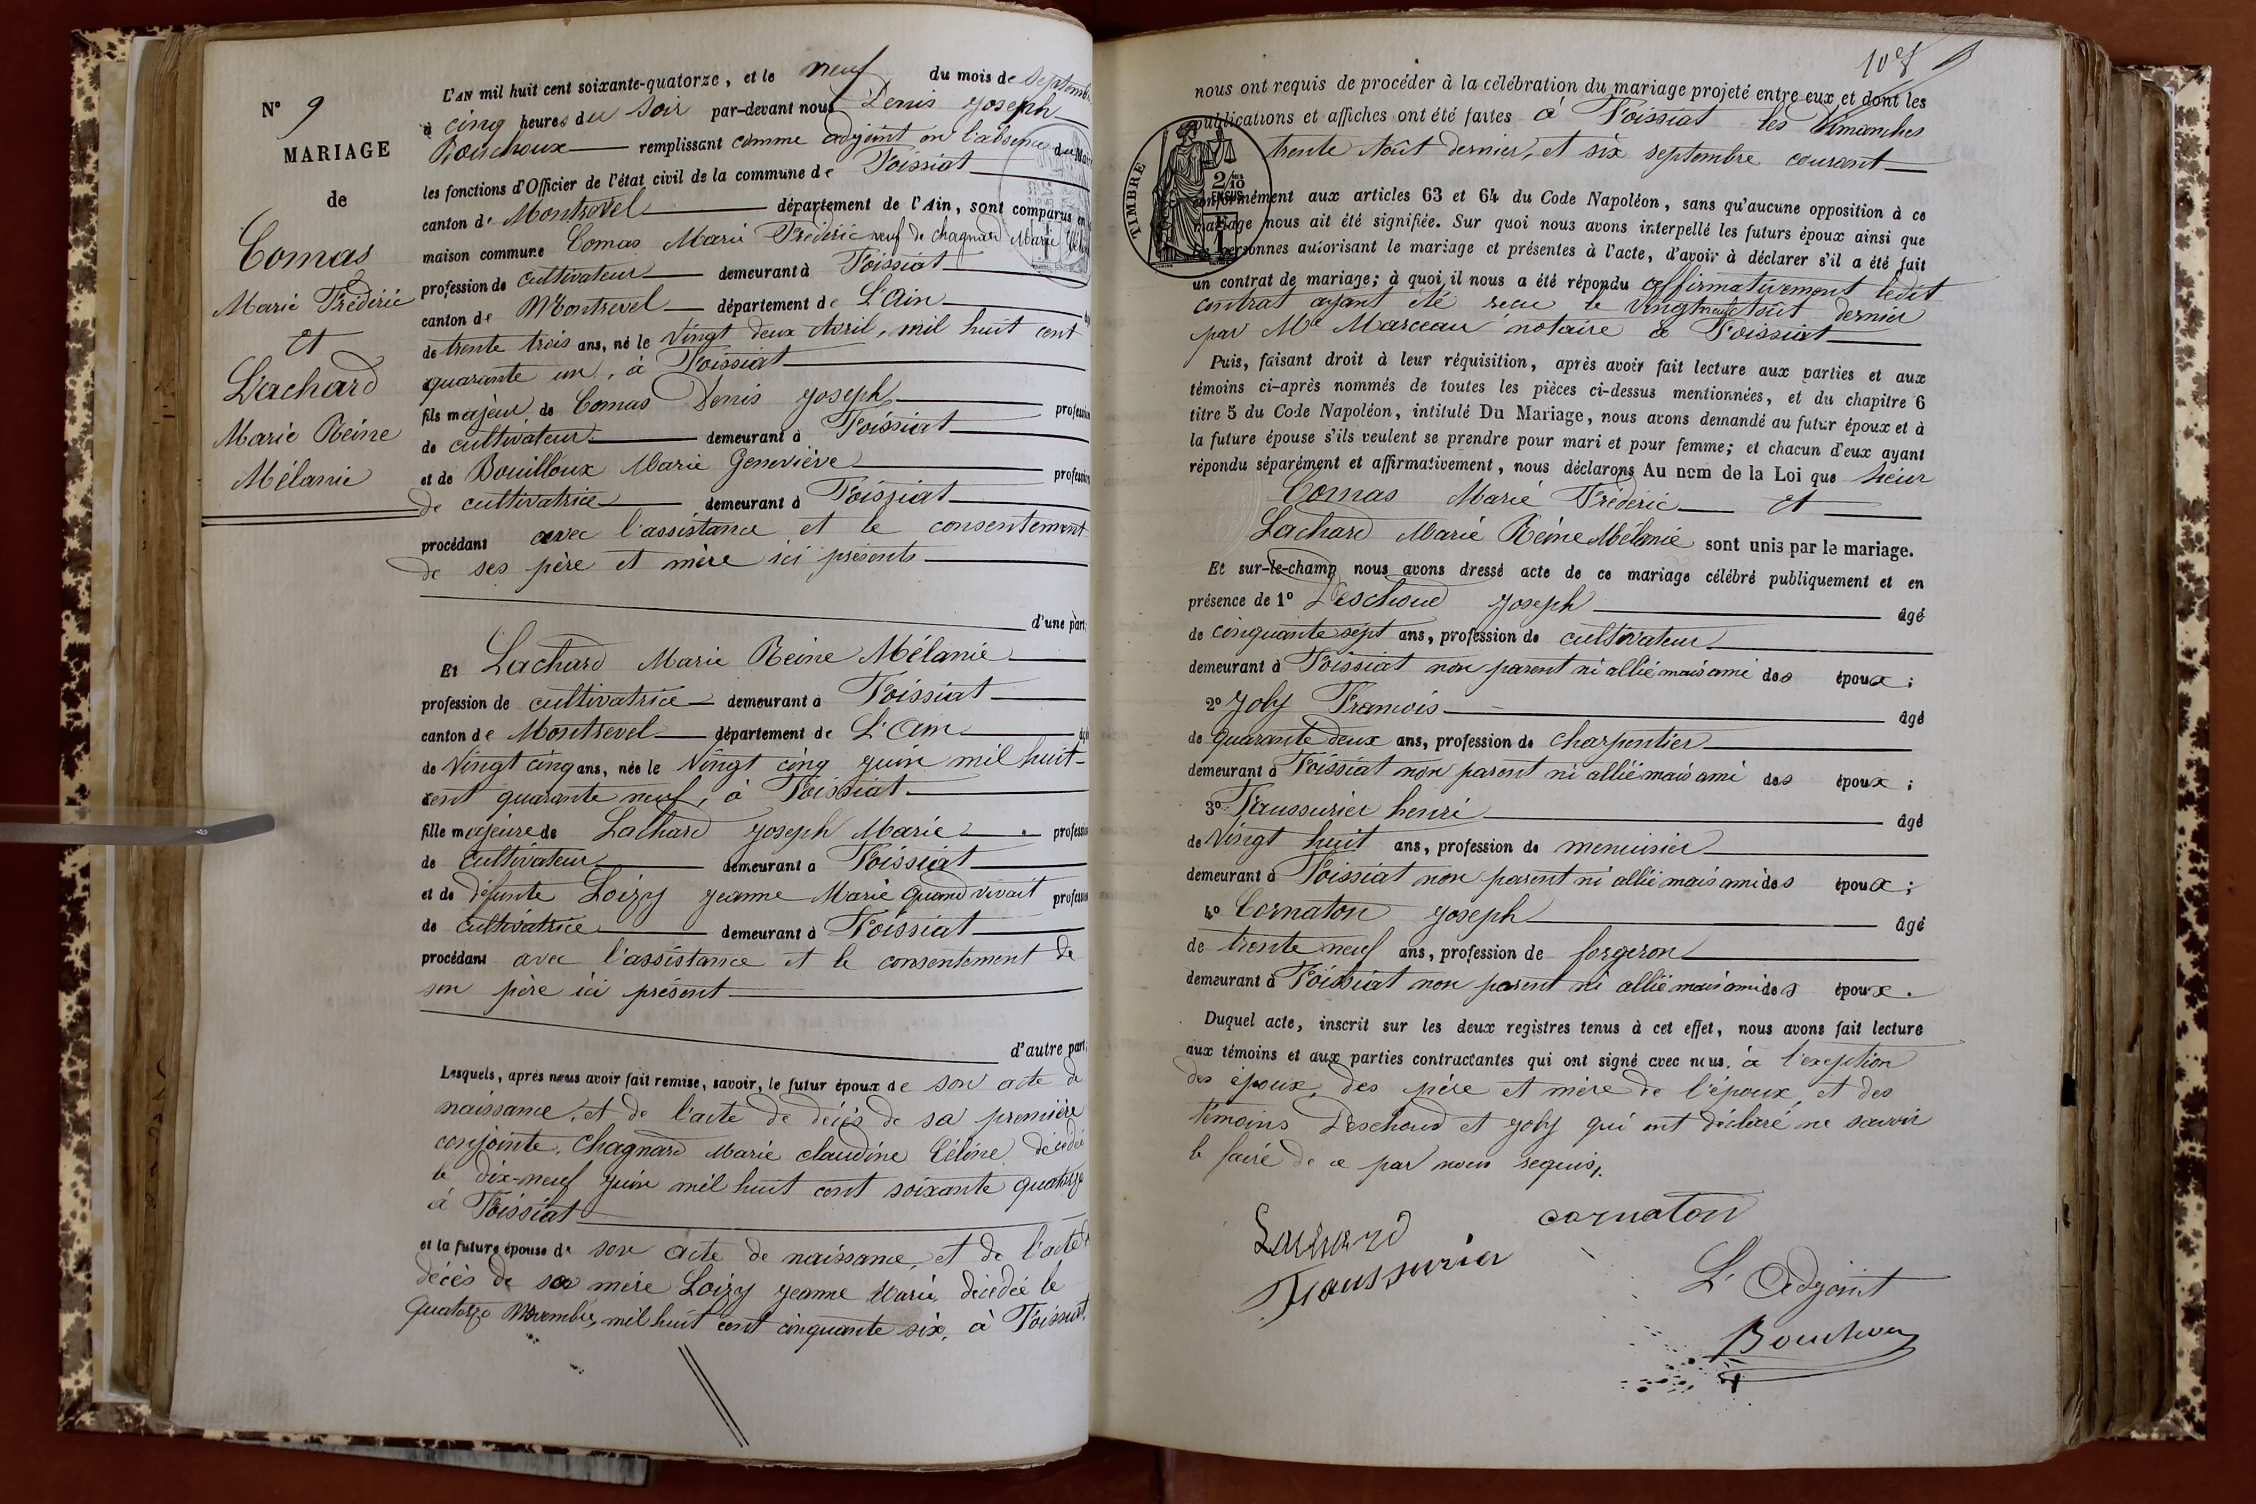 N° 9
MARIAGE
de
Comas
Marie Fréderic
et
Lachard
Marie Reine
Mélanie
L'AN mil huit cent soixante-quatorze, et le neuf du mois de Septembre
à cinq heures du soir par-devant nous Denis Joseph
Bouchoux remplissant comme adjoint en l'absence du Maire
les fonctions d'Officier de l'état civil de la commune de Foissiat
canton de Montrevel département de l'Ain, sont comparus en
maison commune Comas Marie Fréderic veuf de chagnard Marie
profession de cultivateur demeurant à Foissiat
canton de Montrevel département de L'Ain
de trente trois ans, né le Vingt deux Avril, mil huit cent
quarante un, à Foissiat
fils majeur de Comas Denis Joseph profession
de cultivateur demeurant à Foissiat
et de Bouilloux Marie Geneviève profession
de cultivatrice demeurant à Foissiat
procédant avec l'assistance et le consentement
de ses père et mère ici présents
d'une part;
Et Lachard Marie Reine Mélanie
profession de cultivatrice demeurant à Foissiat
canton de Montrevel département de L'Ain âgée
de Vingt cinq ans, née le Vingt cinq Juin mil huit-
cent quarante neuf, à Foissiat
fille majeure de Lachard Joseph Marie profession
de cultivateur demeurant à Foissiat
et de défunte Loizy Jeanne Marie quand vivait profession
de cultivatrice demeurant à Foissiat
procédant avec l'assistance et le consentement de
son père ici présent
d'autre part;
Lesquels, après nous avoir fait remise, savoir, le futur époux de son acte de
naissance, et de l'acte de décès de sa première
conjointe, Chagnard Marie claudine Céline décédée
le dix-neuf Juin mil huit cent soixante quatorze
à Foissiat
et la future épouse de son acte de naissance, et de l'acte de
décès de sa mère Loizy Jeanne Marie, décédée le
quatorze Novembre, mil huit cent cinquante six, à Foissiat.
10
nous ont requis de procéder à la célébration du mariage projeté entre eux et dont les
publications et affiches ont été faites à Foissiat les dimanches
trente Août dernier, et six septembre courant
TIMBRE
2/10
EN SUS
conformément aux articles 63 et 64 du Code Napoléon, sans qu'aucune opposition à ce
mariage nous ait été signifiée. Sur quoi nous avons interpellé les futurs époux ainsi que
les personnes autorisant le mariage et présentes à l'acte, d'avoir à déclarer s'il a été fait
un contrat de mariage; à quoi il nous a été répondu affirmativement ledit
contrat ayant été reçu le vingt neuf Août dernier
par Me Marceau notaire à Foissiat
Puis, faisant droit à leur réquisition, après avoir fait lecture aux parties et aux
témoins ci-après nommés de toutes les pièces ci-dessus mentionnées, et du chapitre 6
titre 5 du Code Napoléon, intitulé Du Mariage, nous avons demandé au futur époux et à
la future épouse s'ils veulent se prendre pour mari et pour femme; et chacun d'eux ayant
répondu séparément et affirmativement, nous déclarons Au nom de la Loi que sieur
Comas Marie Fréderic et
Lachard Marie Reine Mélanie sont unis par le mariage.
Et sur-le-champ nous avons dressé acte de ce mariage célébré publiquement et en
présence de 1° Deschoud Joseph âgé
de cinquante sept ans, profession de cultivateur
demeurant à Foissiat non parent ni allié mais ami des époux;
2° Joly François âgé
de quarante deux ans, profession de charpentier
demeurant à Foissiat non parent ni allié mais ami des époux;
3° Traussurier henri âgé
de Vingt huit ans, profession de menuisier
demeurant à Foissiat non parent ni allié mais ami des époux;
4° Cornaton Joseph âgé
de trente neuf ans, profession de forgeron
demeurant à Foissiat non parent ni allié mais ami des époux.
Duquel acte, inscrit sur les deux registres tenus à cet effet, nous avons fait lecture
aux témoins et aux parties contractantes qui ont signé avec nous. à l'exeption
des époux, des père et mère de l'époux, et des
témoins Deschoud et Joly qui ont déclaré ne savoir
le faire de ce par nous requis.
Lachard cornaton
Traussurier
L'Adjoint
Bouchoux